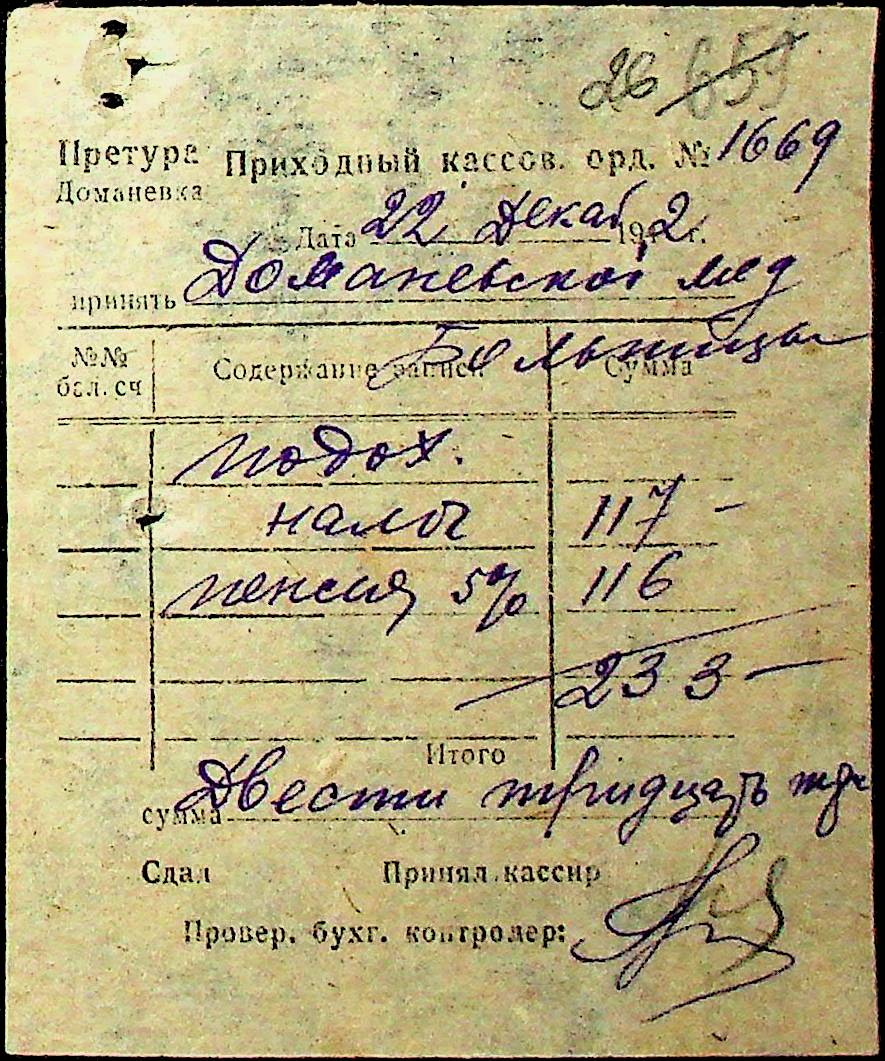 26 659
Претура Приходный кассов. орд. № 1669
Доманевка
Дата 22 Декаб 1942 г.
принять Доманевской мед
Больницы
№№ бал. сч Содержание записи Сумма
подох.
налог 117 -
пенсия 5% 116
233 -
Итого
сумма Двести тридцать три
Сдал Принял кассир
Провер. бухг. контролер: